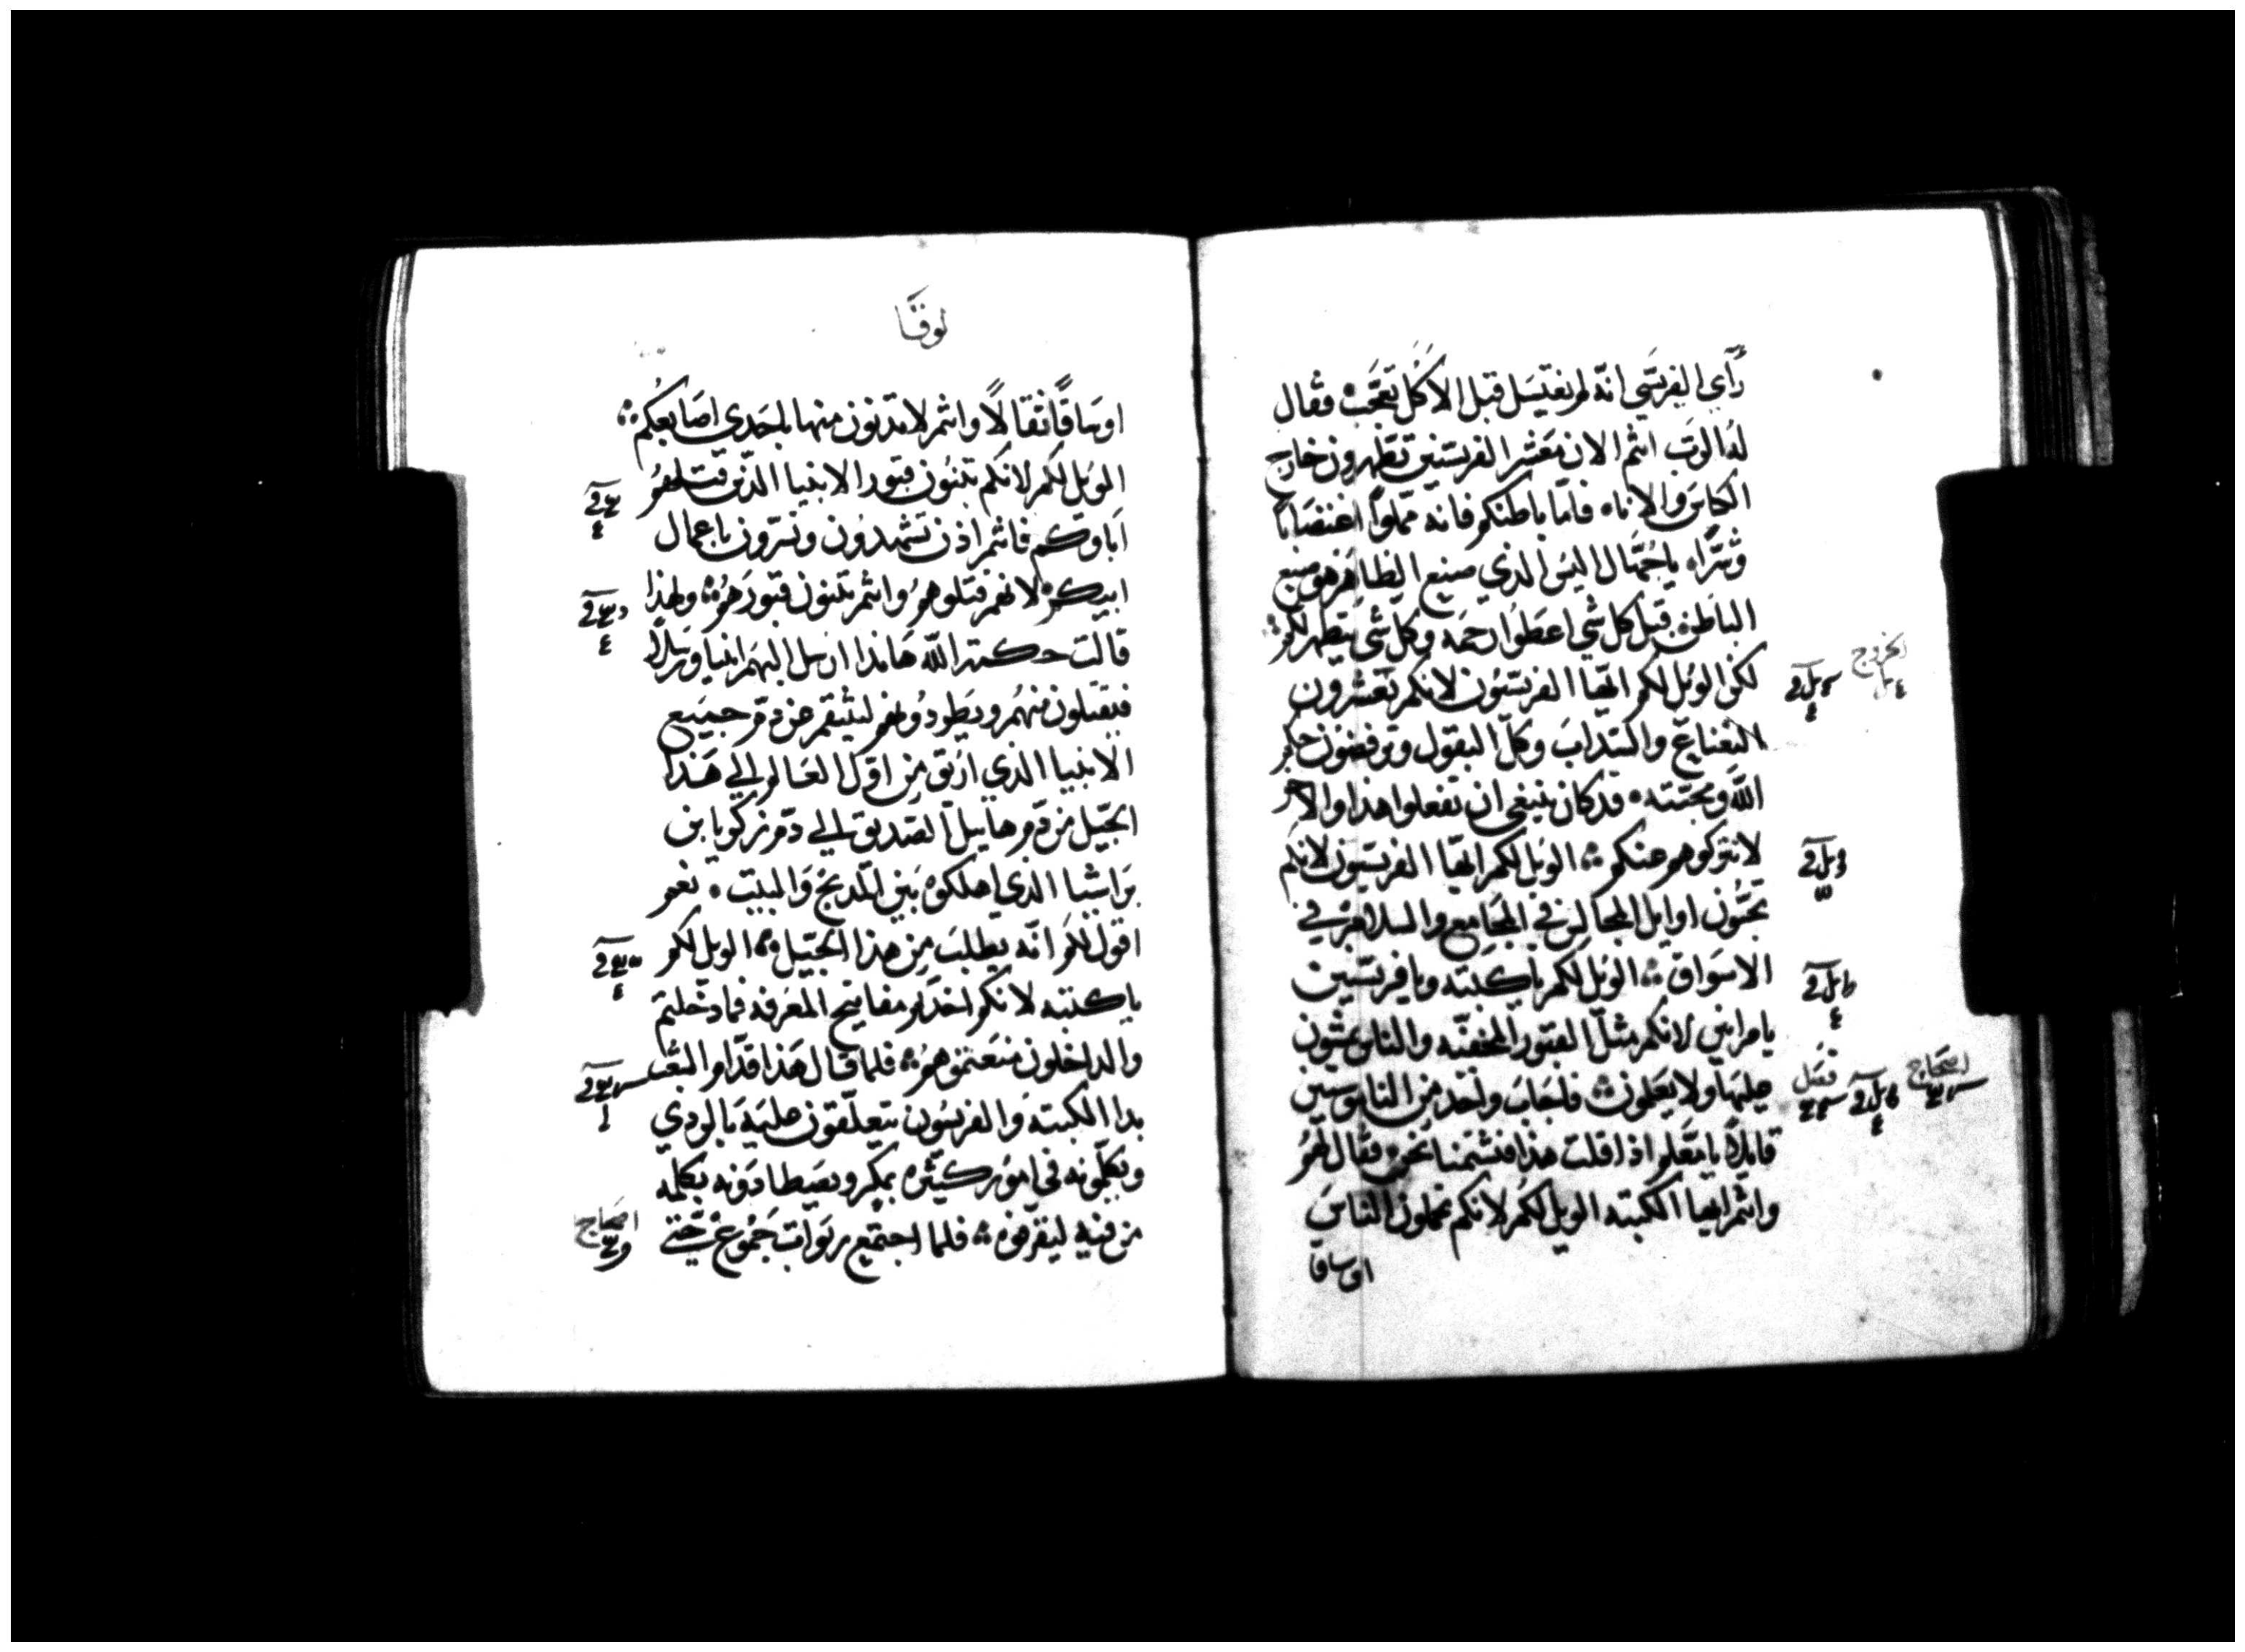 رآي الفريسي انه لم يغتسل قبل الاكل تعجب فقال
له الرب انتم الان معشر الفريسيين تطهرون خارج
الكاس والاناء فامّا باطنكم فانه مملوا اغتضابا
وشرّا يا جهال اليس الذي صنع الظاهر هو صنع
الباطن قبل كل شي اعطوا رحمه وكل شي يتطهر لكم
لكن الويل لكم ايها الفريسيون لانكم تعشرون
النعناع والسداب وكل البقول وترفضون حكم
الله ومحبته قد كان ينبغي ان تفعلوا هذا والاخر
لا تتركوه عنكم الويل لكم ايها الفريسيون لانكم
تحبون اوايل المجالس في المجامع والسلام في
الاسواق الويل لكم يا كتبه ويا فريسيين
يا مرايين لانكم مثل القبور المخفيه والناس يمشون
عليها ولا يعلمون فاجاب واحد من الناموسيين
قايلا يا معلم اذا قلت هذا فتشتمنا نحن فقال لهم
وانتم ايها الكتبه الويل لكم لانكم تحملون الناس
اوساقا
الخروج
فصل
اصحاح
لوقا
اوساقا ثقالا وانتم لا تدنون منها باحدي اصابعكم
الويل لكم لانكم تبنون قبور الانبيا الذين قتلهم
اباوكم فانتم اذن تشهدون وتسرون باعمال
ابيكم لانهم قتلوهم وانتم تبنون قبورهم ولهذا
قالت حكمة الله هانذا ارسل اليهم انبيا ورسلا
فيقتلون منهم ويطردونهم لينتقم عن دم جميع
الانبيا الذي اريق من اول العالم الي هذا
الجيل من دم هابيل الصديق الي دم زكريا بن
براشيا الذي اهلكوه بين المدبح والبيت نعم
اقول لكم انه يطلب من هذا الجيل الويل لكم
يا كتبه لانكم اخذتم مفاتيح المعرفه فما دخلتم
والداخلون منعتموهم فلما قال هذا قدام الشعب
بدا الكتبه والفريسون يتعلقون عليه بالردي
ويكلمونه في امور كثيره بمكر ويصطادونه بكلمه
من فيه ليقرفوه فلما اجتمع ربوات جموع حتي
اصحاح